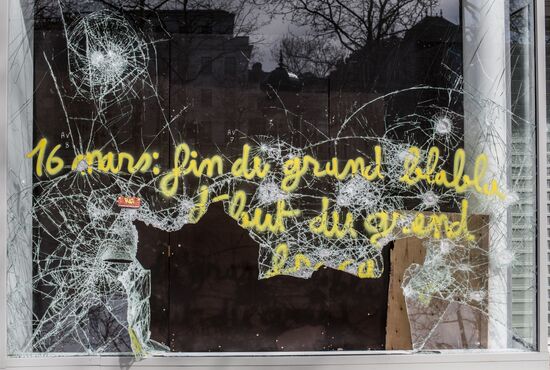 16 mars: fin du grand blabla
début du grand